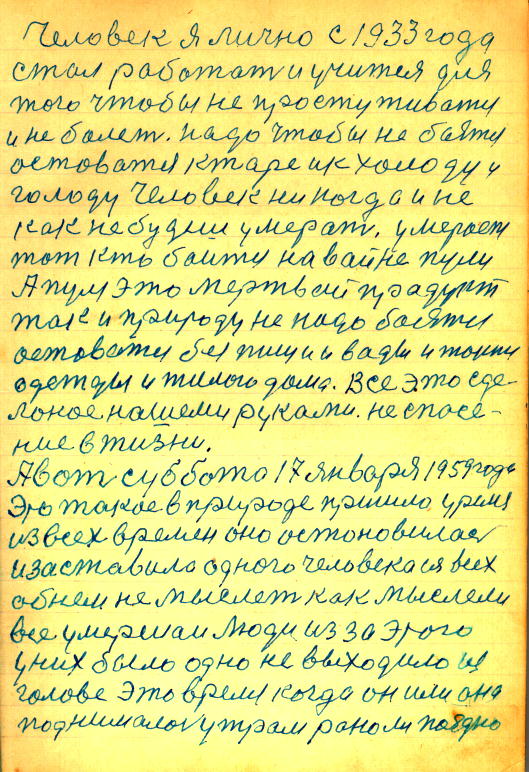 Человек я лично с 1933 года
стал работат и учится для
того чтобы не простуживатся
и не болет. надо чтобы не боятся
остоватся к таре и к холоду и
голоду Человек никогда и не
как не будит умерат. умерает
тот кто боится на вайне пули
А пуля это мертвый прадукт
так и природу не надо боятся
остоватся без пищи и вады и тоже
одежды и тилого дома. Все это сде-
ланое нашеми руками. не спасе-
ние в жизни.
А вот суббота 17 января 1959 года
Это такое в природе пришло время
из всех времен оно остоновилась
и заставила одного человека ся всех
обнем не мыслет как мыслели
все умершаи люди из за этого
у них было одно не выходило из
голове это время когда он или она
поднималос утрам рано ли поздно